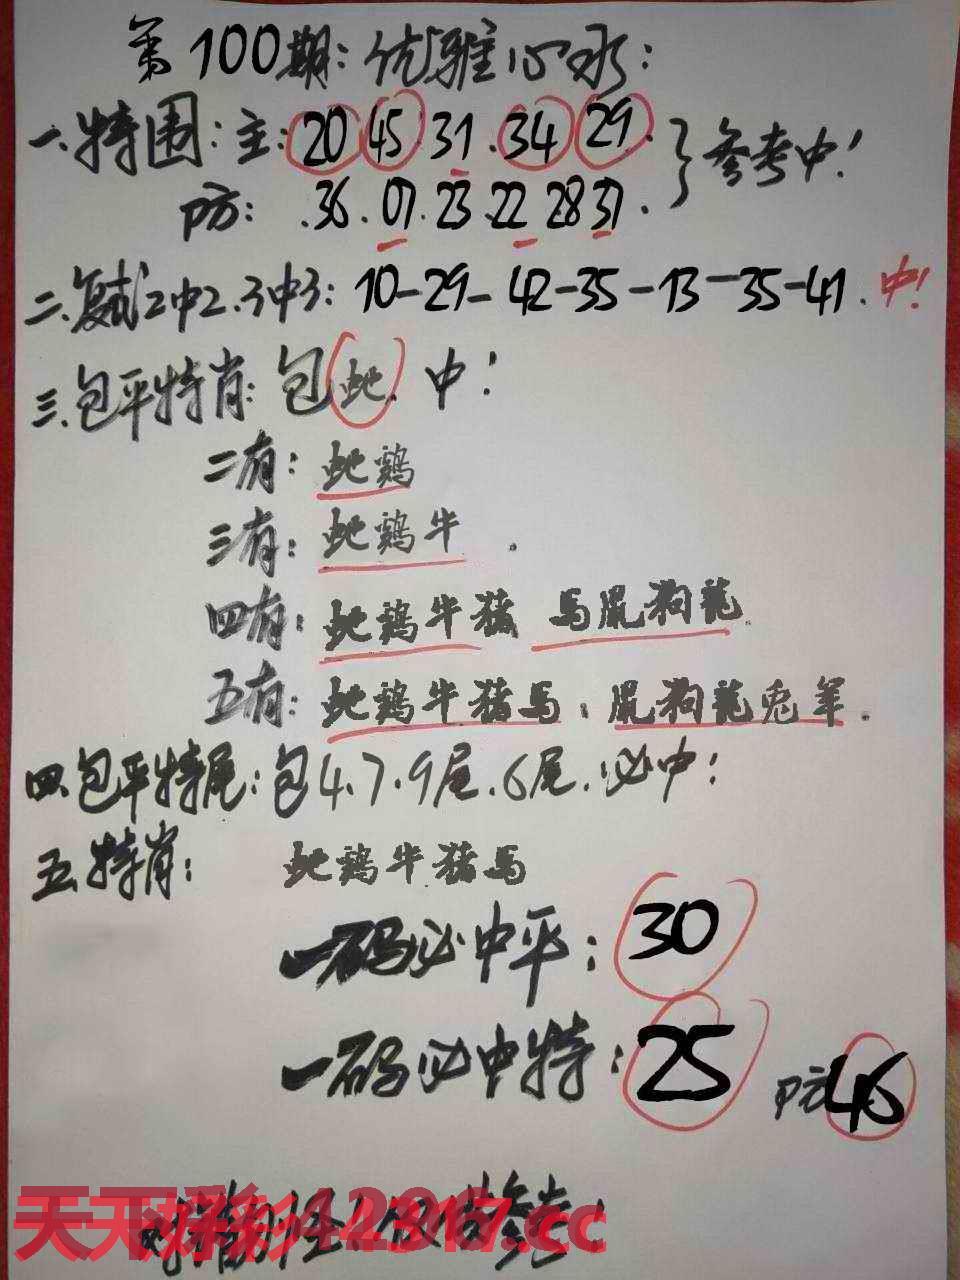 第100期:优雅心水:
一.特围:主:20 45.31.34 29.}参考中!
防:.36.07.23.22 28 37.
二.复式2中2.3中3:10-29-42-35-13-35-41.中!
三.包平特肖:包蛇.中!
二有:蛇鷄
三有:蛇鷄牛.
四有:蛇鷄牛猪 馬鼠狗龍.
五有:蛇鷄牛猪馬:鼠狗龍兎羊.
四.包平特尾:包4.7.9尾.6尾.必中!
五.特肖:蛇鷄牛猪馬
一码必中平:30
一码必中特:25 防46
天天好彩 .cc